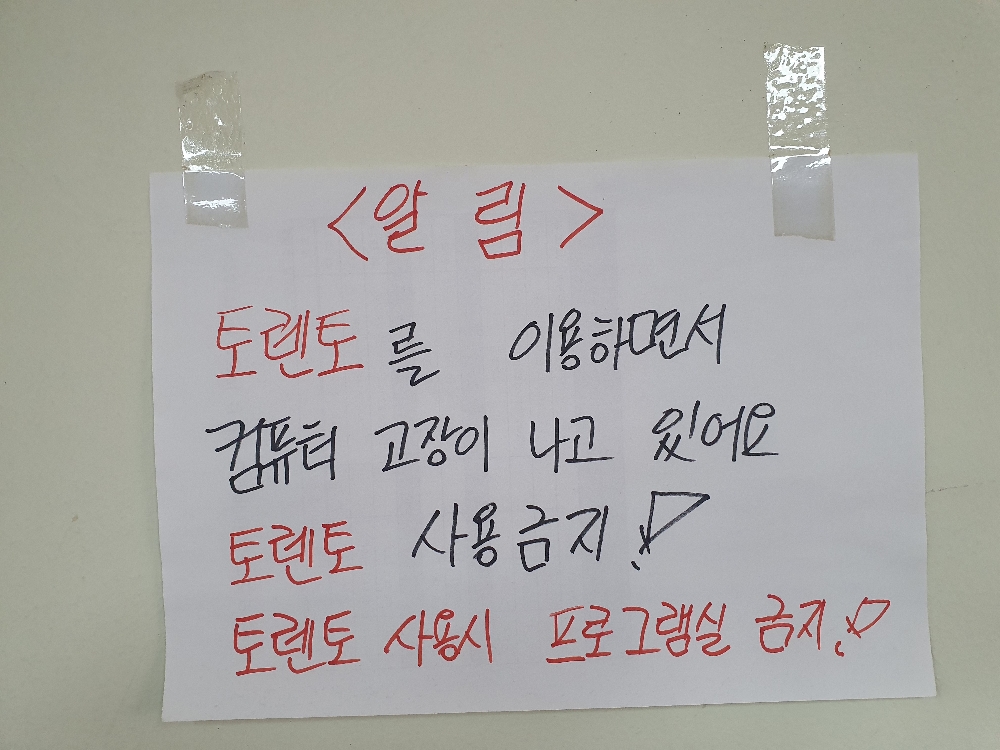 <알 림>
토렌토를 이용하면서
컴퓨터 고장이 나고 있어요
토렌토 사용금지!
토렌토 사용시 프로그램실 금지!